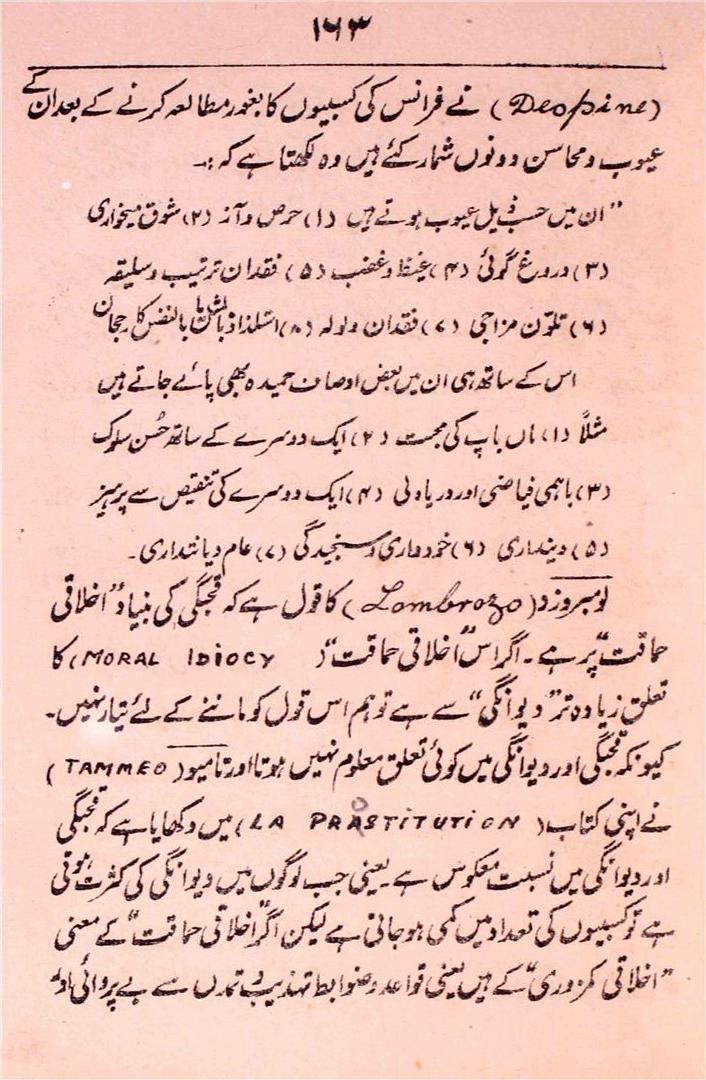 ۱۶۳
(Deopine) نے فرانس کی کسبیوں کا بغور مطالعہ کرنے کے بعد ان کے
عیوب و محاسن دونوں شمار کئے ہیں وہ لکھتا ہے کہ :۔
"ان میں حسب ذیل عیوب ہوتے ہیں (۱) حرص و آز (۲) شوق میخواری
(۳) دروغ گوئی (۴) غیظ و غضب (۵) فقدان ترتیب و سلیقہ
(۶) تلوّن مزاجی (۷) فقدان ولولہ (۸) استلذاذ بالمثل یا بالنفس کا رجحان
اس کے ساتھ ہی ان میں بعض اوصاف حمیدہ بھی پائے جاتے ہیں
مثلاً (۱) ماں باپ کی محبت (۲) ایک دوسرے کے ساتھ حُسن سلوک
(۳) باہمی فیاضی اور دریا دلی (۴) ایک دوسرے کی تنقیص سے پرہیز
(۵) دینداری (۶) خودداری و سنجیدگی (۷) عام دیانتداری۔
لومبروزو (Lombrozo) کا قول ہے کہ قحبگی کی بنیاد "اخلاقی
حماقت" پر ہے۔ اگر اس "اخلاقی حماقت" (MORAL IDIOCY) کا
تعلق زیادہ تر "دیوانگی" سے ہے تو ہم اس قول کو ماننے کے لئے تیار نہیں۔
کیونکہ قحبگی اور دیوانگی میں کوئی تعلق معلوم نہیں ہوتا اور تامیو (TAMMEO)
نے اپنی کتاب (LA PROSTITUTION) میں دکھایا ہے کہ قحبگی
اور دیوانگی میں نسبت معکوس ہے۔ یعنی جب لوگوں میں دیوانگی کی کثرت ہوتی
ہے تو کسبیوں کی تعداد میں کمی ہو جاتی ہے لیکن اگر "اخلاقی حماقت" کے معنی
"اخلاقی کمزوری" کے ہیں یعنی قواعد و ضوابط تہذیب و تمدن سے بے پروائی اور